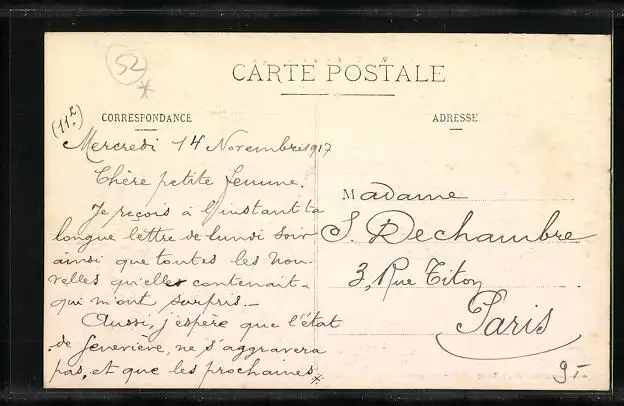 52
*
CARTE POSTALE
(11.
CORRESPONDANCE
ADRESSE
Mercredi 14 Novembre 1917
Chère petite femme.
Je reçois à l'instant ta
longue lettre de lundi soir
ainsi que toutes les nou-
velles qu'elle contenait
qui m'ont surpris.—
Aussi, j'espère que l'état
de Geneviève, ne s'aggravera
pas, et que les prochaines *
Madame
S. Dechambre
3, Rue Titon
Paris
9-